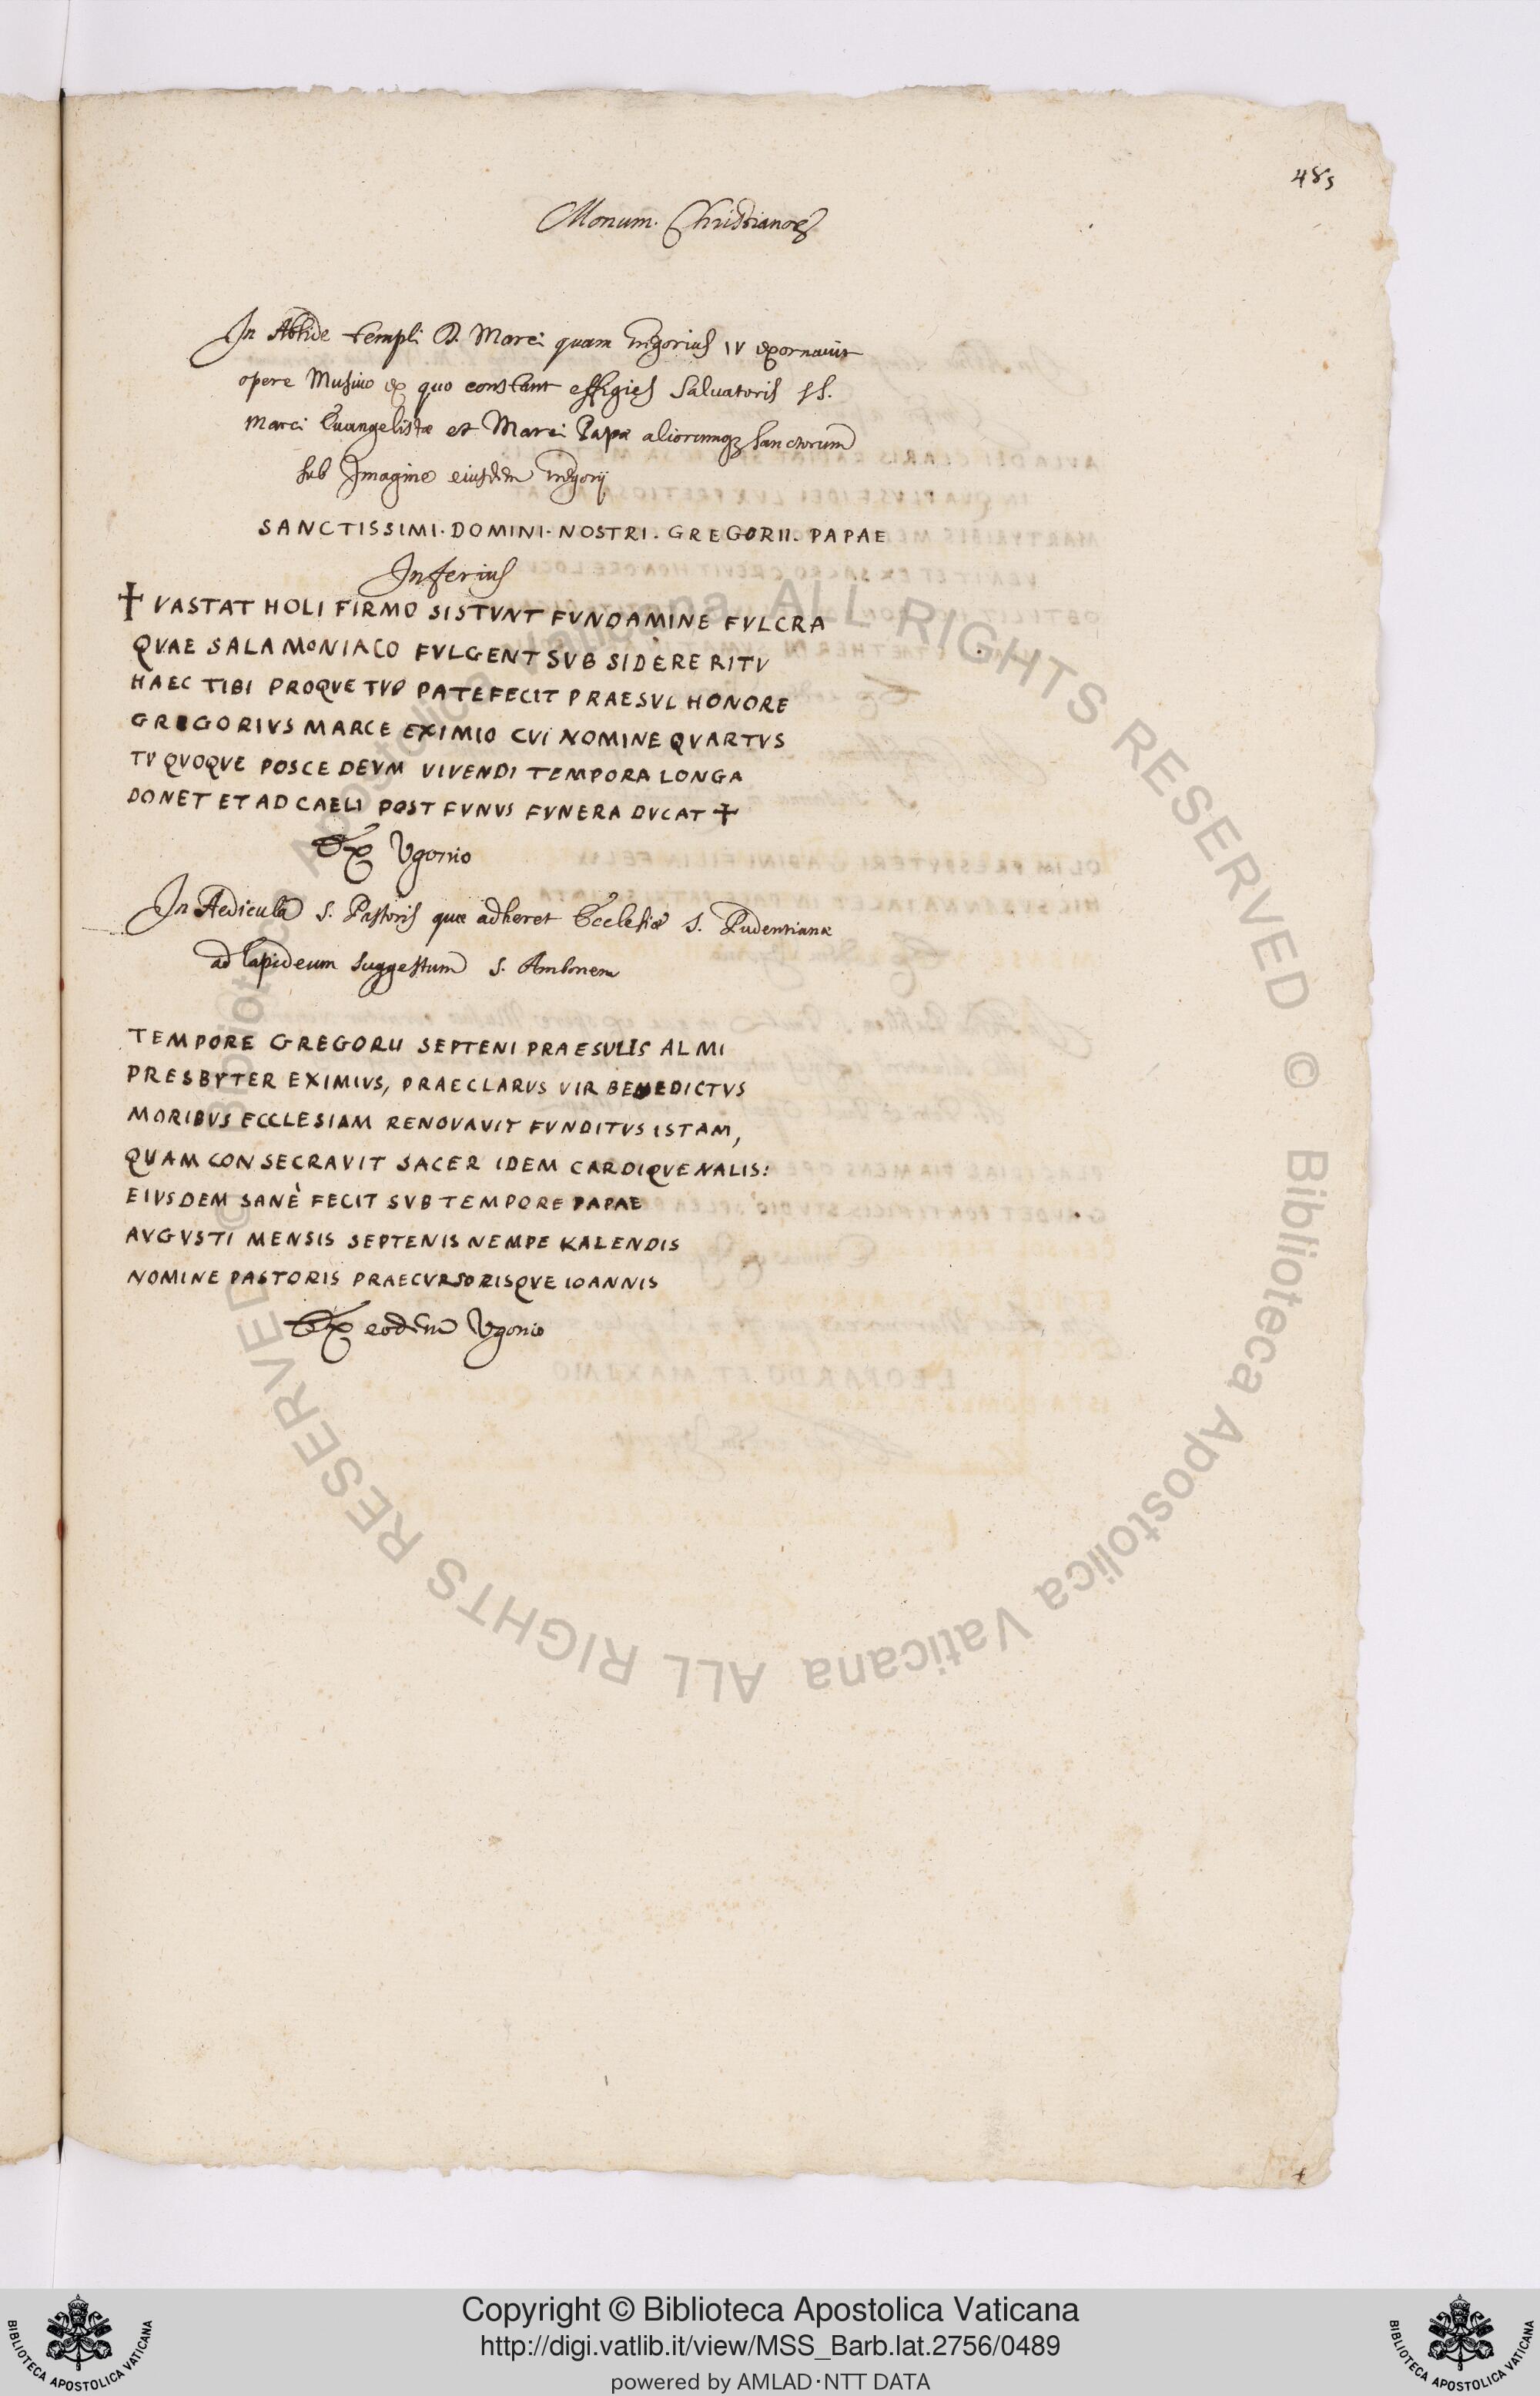 485
Monum. Christianoꝝ
In Abside templi D. Marci quam Gregorius IV exornauit
opere Musiuo ex quo constant effigies Saluatoris SS.
Marci Euangelistæ et Marci Papæ aliorumqꝫ Sanctorum
sub Imagine eiusdem Gregorij
SANCTISSIMI·DOMINI·NOSTRI·GREGORII·PAPAE
Inferius
✝ VASTAT HOLI FIRMO SISTVNT FVNDAMINE FVLCRA
QVAE SALAMONIACO FVLGENT SVB SIDERE RITV
HAEC TIBI PROQVE TVO PATEFECIT PRAESVL HONORE
GREGORIVS MARCE EXIMIO CVI NOMINE QVARTVS
TV QVOQVE POSCE DEVM VIVENDI TEMPORA LONGA
DONET ET AD CAELI POST FVNVS FVNERA DVCAT ✝
Ex Vgonio
In Aedicula S. Pastoris quæ adheret Ecclesiæ S. Pudentianæ
ad lapideum suggestum s. Ambonem
TEMPORE GREGORII SEPTENI PRAESULIS ALMI
PRESBYTER EXIMIVS, PRAECLARVS VIR BENEDICTVS
MORIBVS ECCLESIAM RENOVAVIT FVNDITVS ISTAM,
QVAM CONSECRAVIT SACER IDEM CARDIQVENALIS:
EIVSDEM SANÈ FECIT SVB TEMPORE PAPAE
AVGVSTI MENSIS SEPTENIS NEMPE KALENDIS
NOMINE PASTORIS PRAECVRSORISQVE IOANNIS
Ex eodem Vgonio
© Biblioteca Apostolica Vaticana ALL RIGHTS RESERVED © Biblioteca Apostolica Vaticana ALL RIGHTS RESERVED
Copyright © Biblioteca Apostolica Vaticana
http://digi.vatlib.it/view/MSS_Barb.lat.2756/0489
powered by AMLAD·NTT DATA
BIBLIOTECA APOSTOLICA VATICANA
BIBLIOTECA APOSTOLICA VATICANA